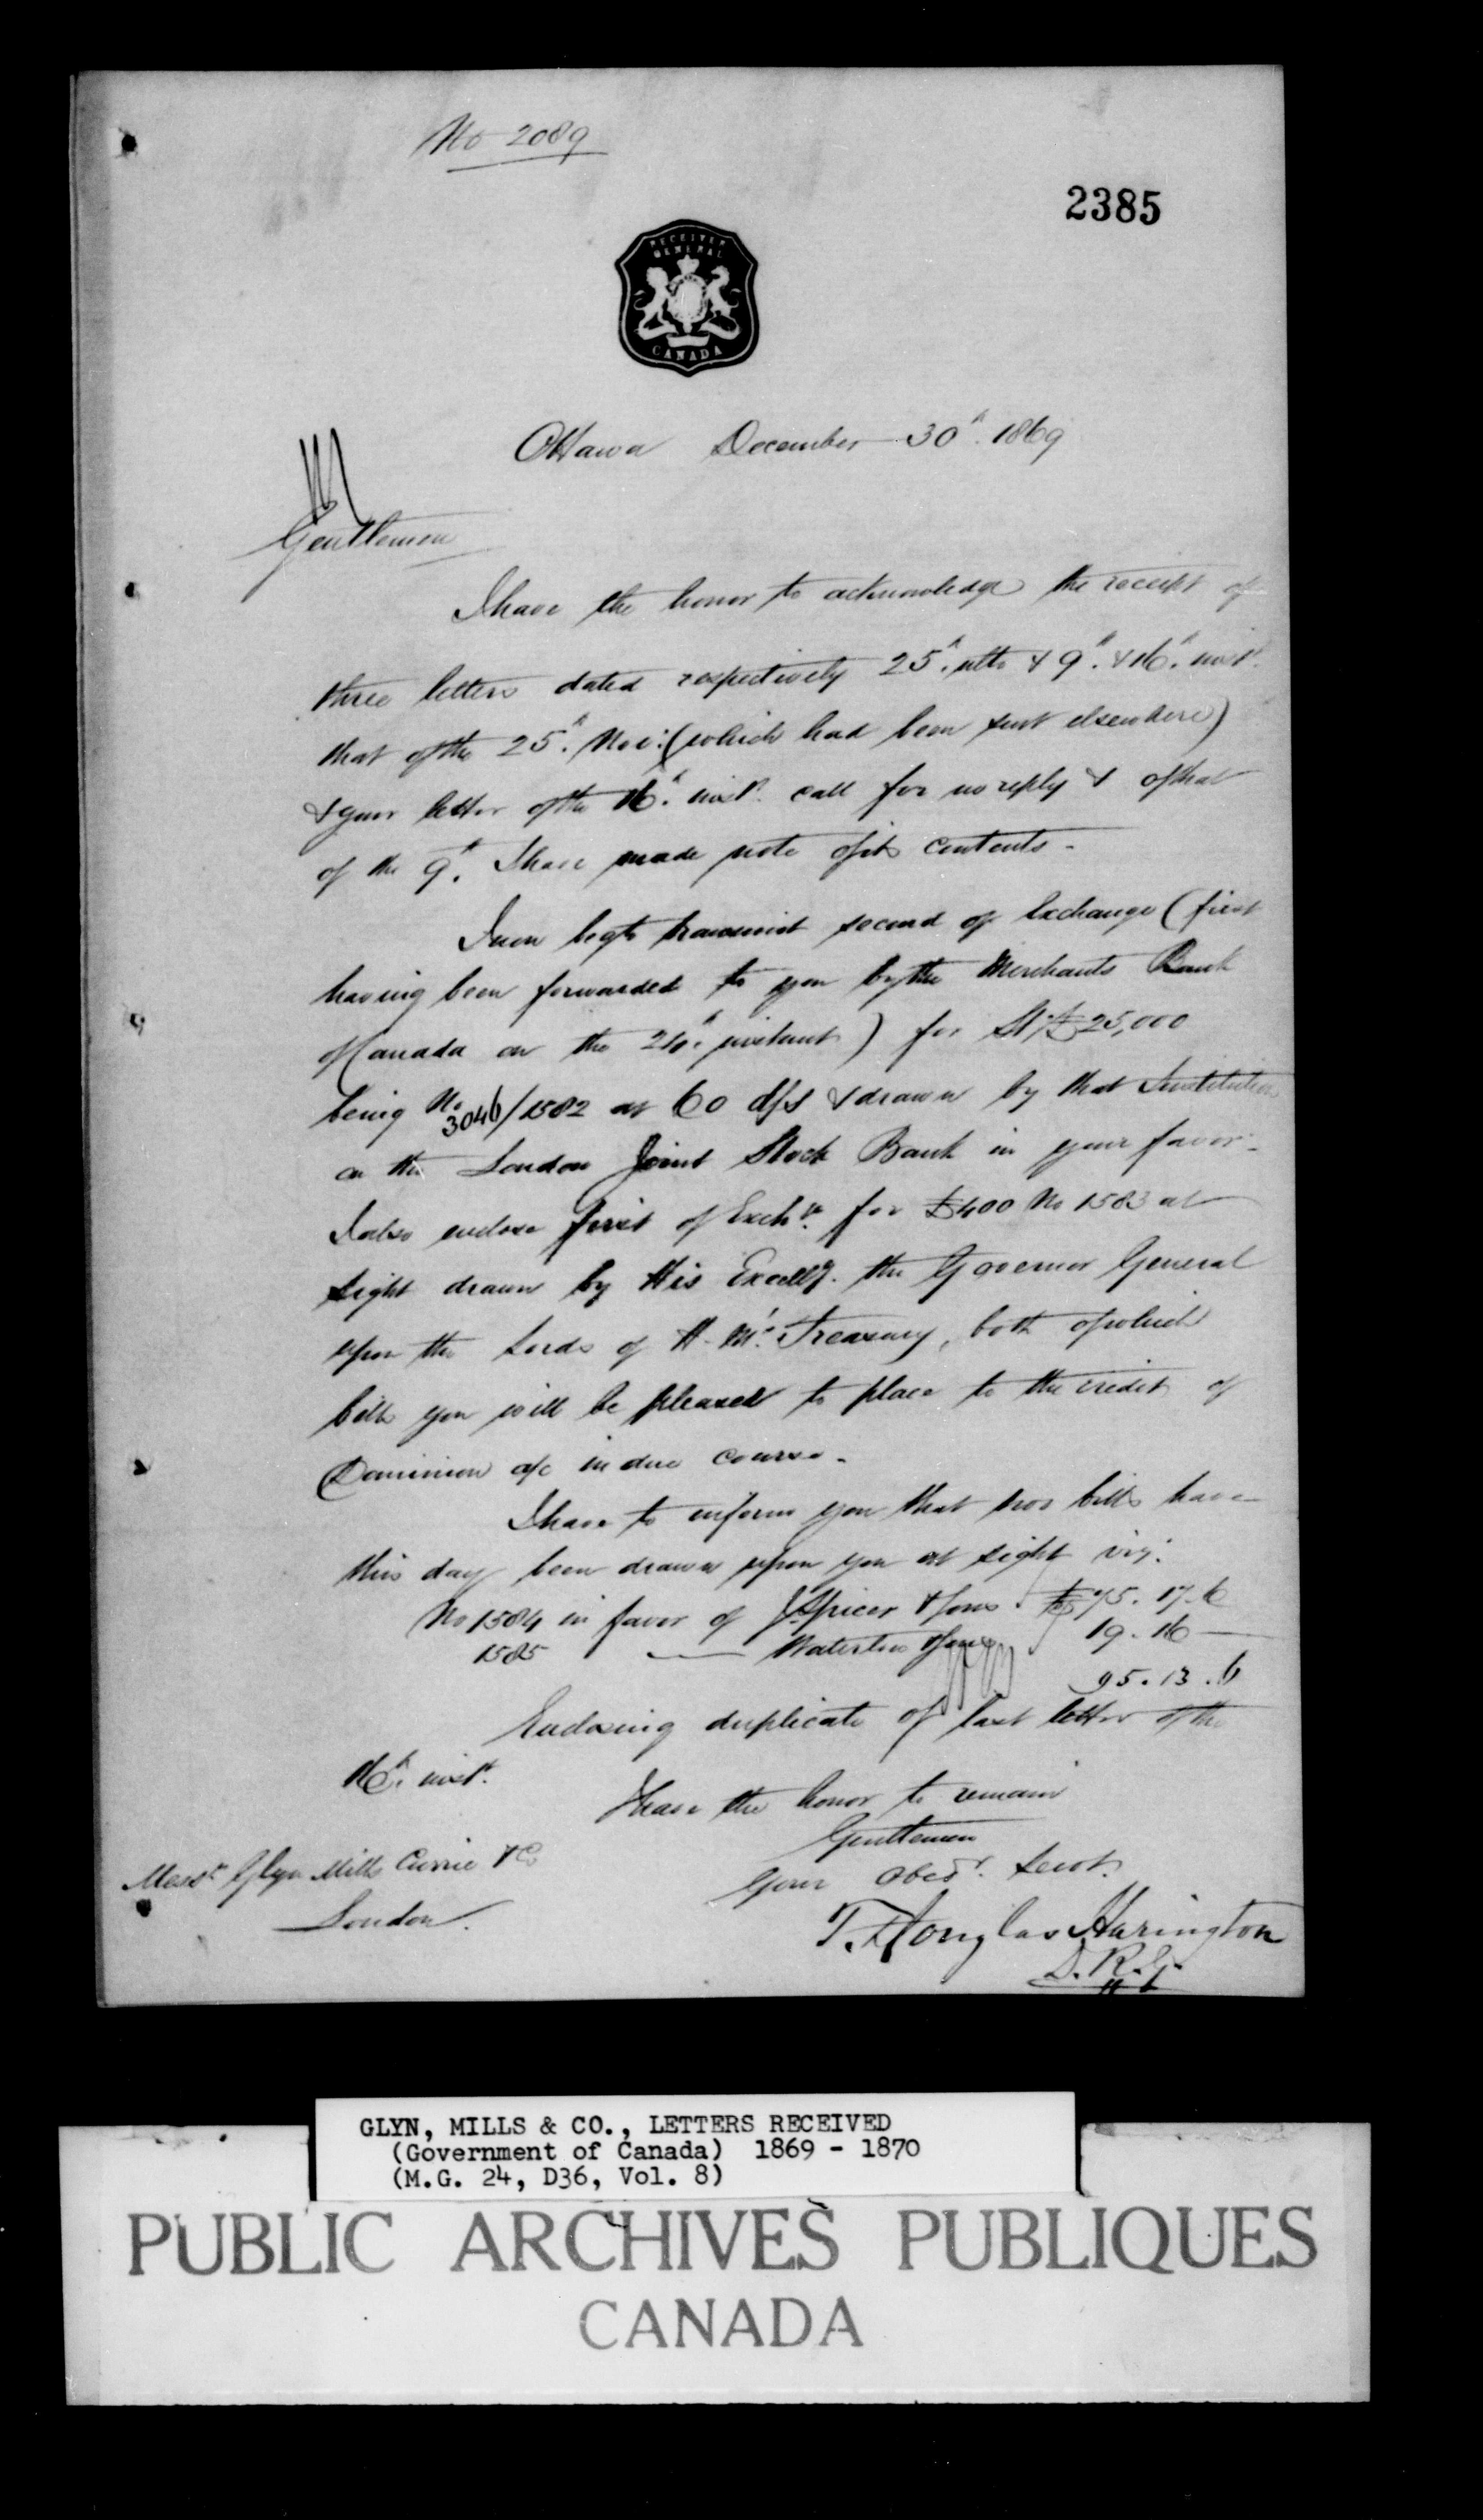 No 2089
2385
RECEIVER
GENERAL
CANADA
Ottawa December 30th. 1869
Gentlemen
I have the honor to acknowledge the receipt of
three letters dated respectively 25th. ulto & 9th. & 16th. inst.
that of the 25th. Nov: (which had been sent elsewhere)
& your letter of the 16th. inst. call for no reply & of that
of the 9th. I have made note of its contents -
I now beg to transmit second of Exchange (first
having been forwarded to you by the Merchants Bank
of Canada on the instant) for St/£25,000
being No 3046/1582 at 60 d/s & drawn by that Institution
on the London Joint Stock Bank in your favor -
I also enclose first of Exche. for £400 No 1583 at
sight drawn by His Excelly. the Governor General
upon the Lords of H. M's. Treasury, both of which
bills you will be pleased to place to the credit of
Dominion a/c in due course -
I have to inform you that two bills have
this day been drawn upon you at sight viz:
No 1584 in favor of J Spicer & Sons £75. 17. 6
1585 — Waterlow & Sons 19. 16 —
95. 13. 6
Enclosing duplicate of last letter of the
16th. inst.
I have the honor to remain
Gentlemen
Your obedt. Servt.
T. Douglas Harington
D. R. G.
Messrs Glyn Mills Currie & Co
London.
GLYN, MILLS & CO., LETTERS RECEIVED
(Government of Canada) 1869 - 1870
(M.G. 24, D36, Vol. 8)
PUBLIC ARCHIVES PUBLIQUES
CANADA